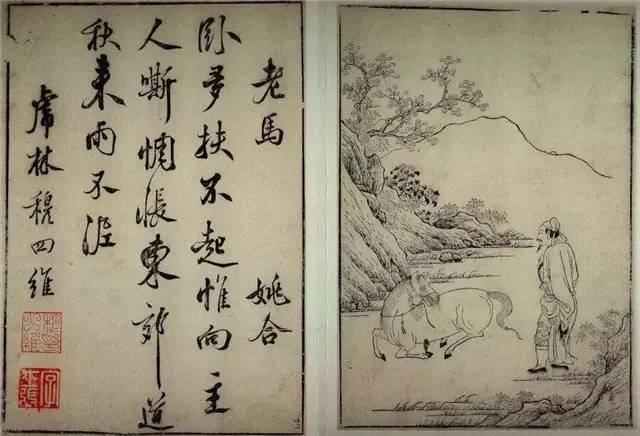 老馬 姚合
臥多扶不起惟向主
人嘶惆悵東郊道
秋來雨不泥
虎林穆四維